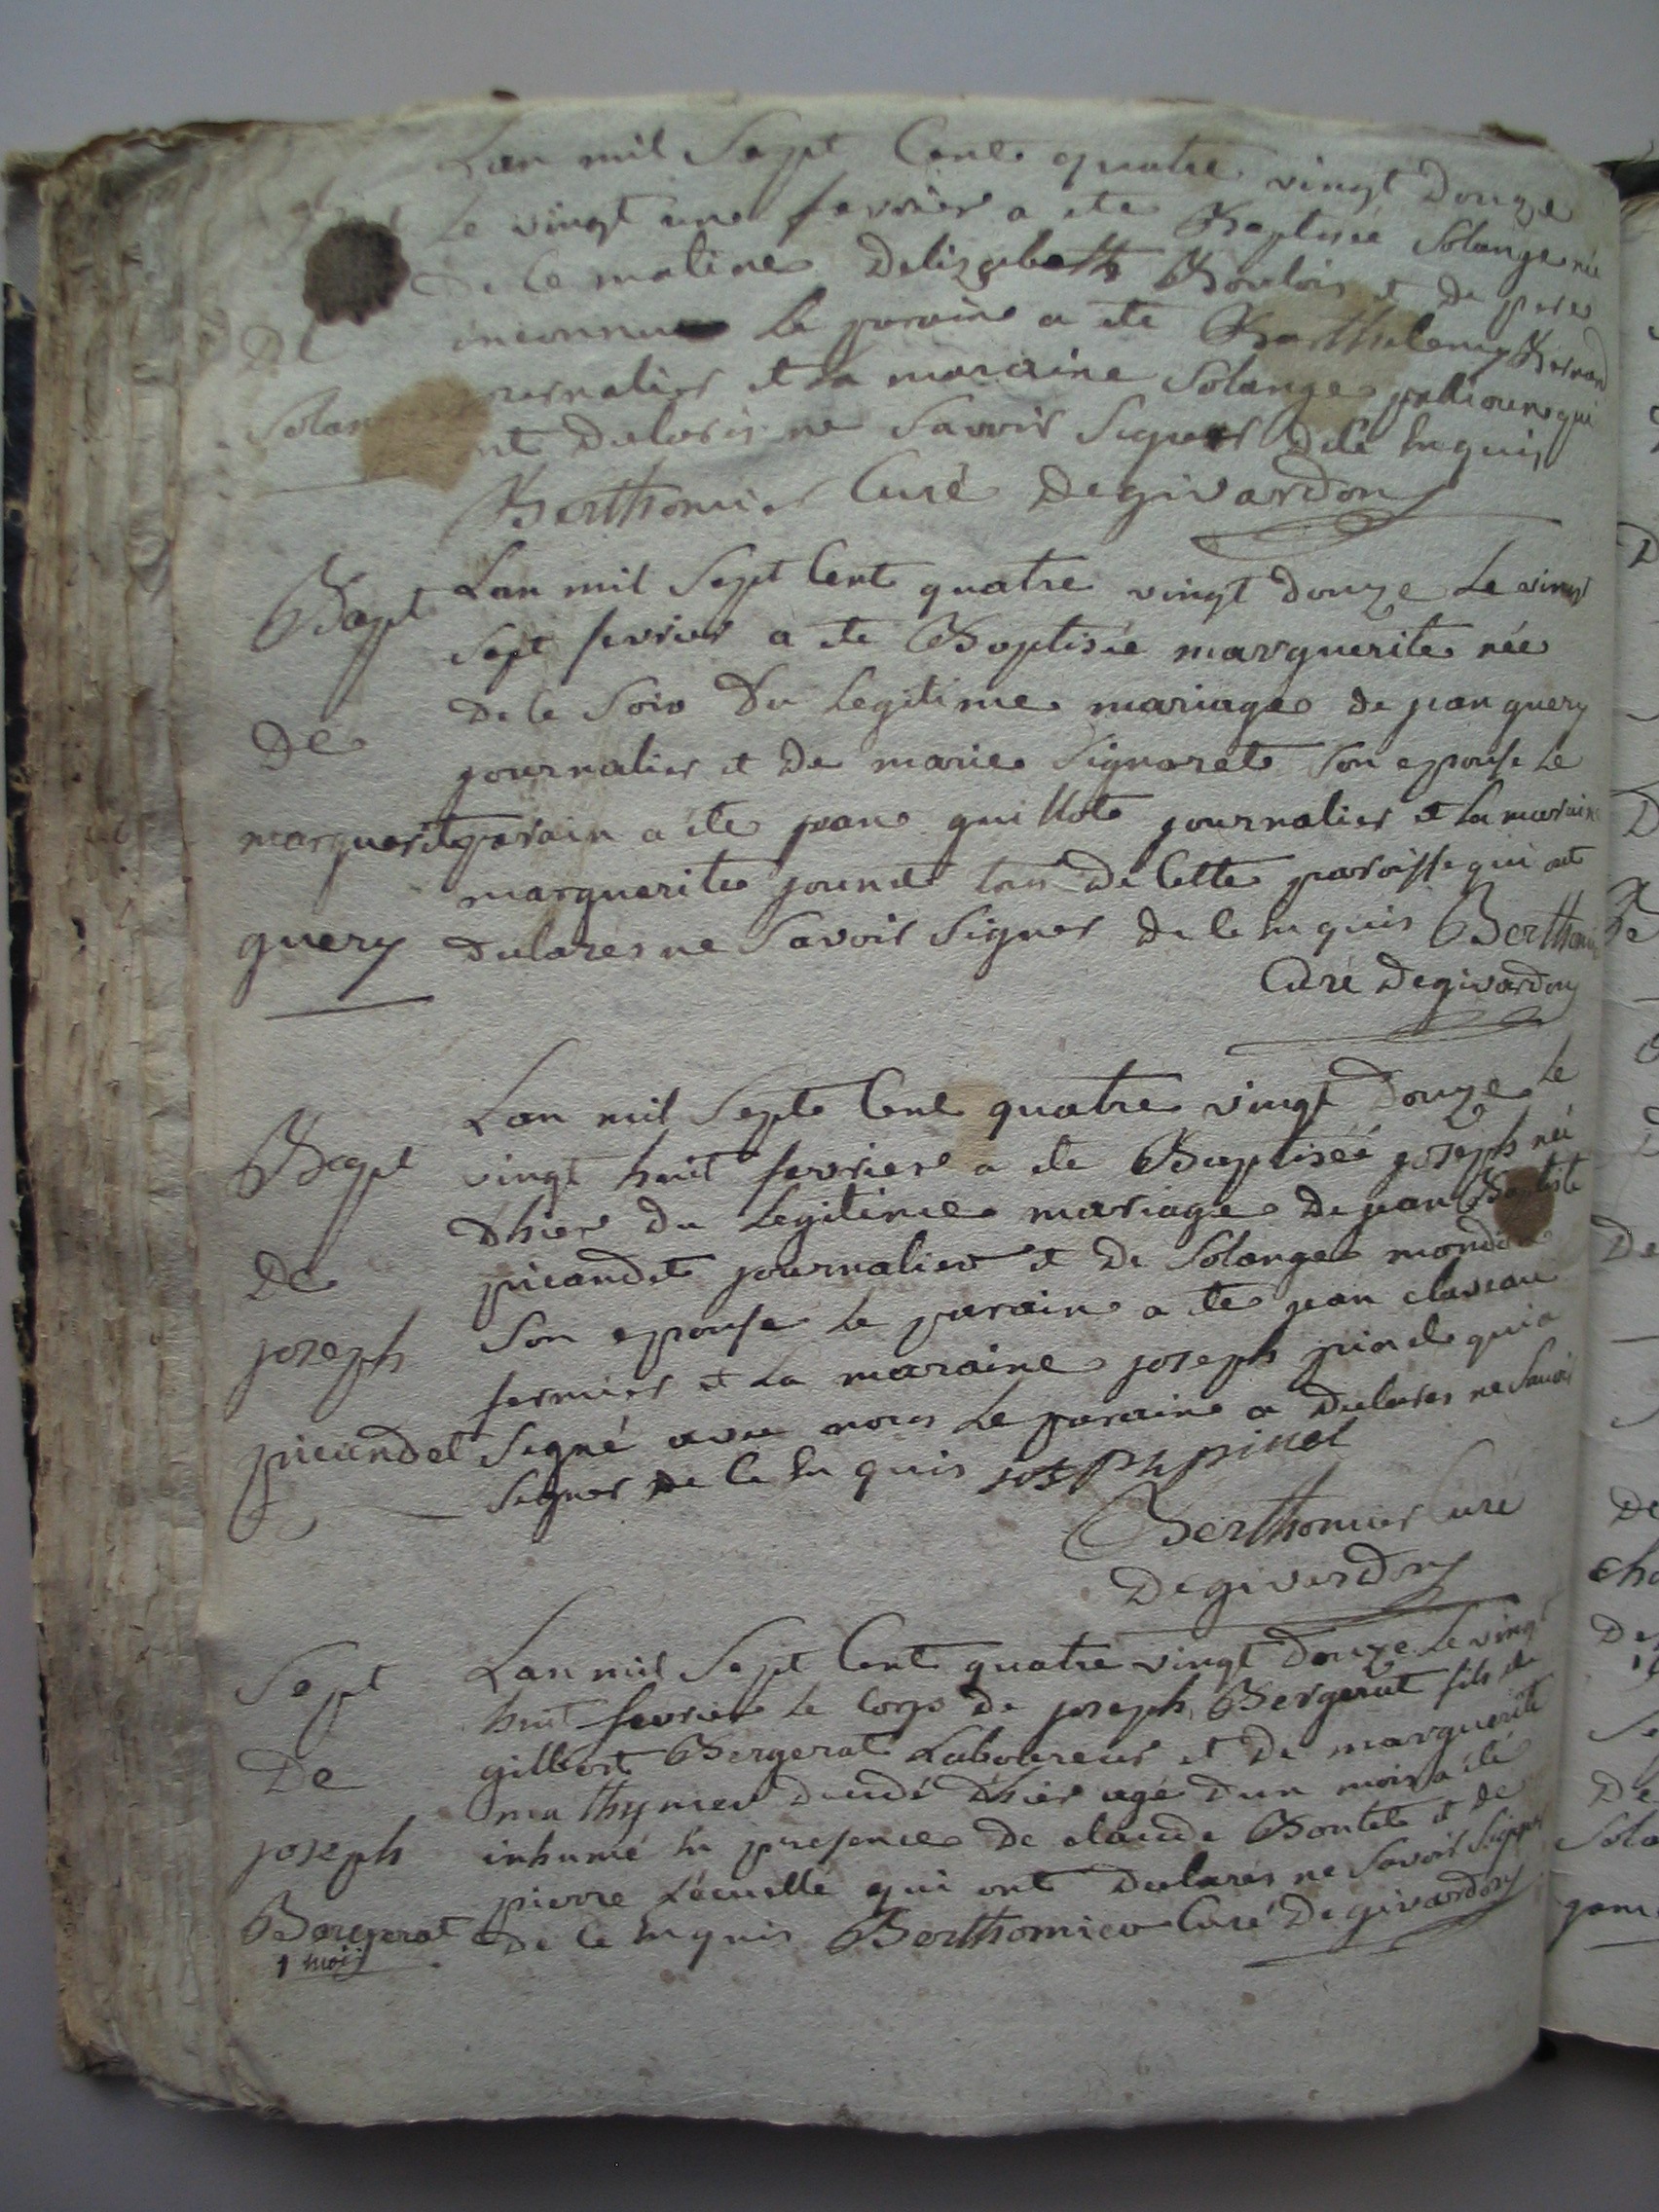 Lan mil Sept Cent quatre vingt Douze
Le vingt un fevrier a ete Baptiseé Solange née
de ce matine Delizabeth Boulois et de pere
inconnu Le parain a ete Barthelemy Bernard
journalier et la maraine Solange qui
ont Declarés ne Savoir Signer de ce Enquis
Berthomier Curé Degivardon
De
Solan
Bapt
De
marguerite
guery
Lan mil Sept Cent quatre vingt Douze Le vingt
Sept fevrier a ete Baptisée marguerite née
de ce Soir Du Legitime mariage de jean guery
journalier et De marie Signoret Son epouse Le
parain a ete jean guillot journalier et La maraine
marguerite jounet tous De Cette paroisse qui ont
Declarés ne Savoir Signer de ce Enquis Berthomier
Curé Degivardon
Bapt
De
joseph
picandet
Lan mil Sept Cent quatre vingt Douze Le
vingt huit fevrier a ete Baptiseé joseph née
dhier du Legitime mariage De jean Baptiste
picandet journalier et De Solange
Son epouse Le parain a ete jean claveau
fermier et La maraine joseph pinel qui a
Signé avec nous Le paraine a Declarés ne Savoir
Signer de ce Enquis joseph pinel
Berthomier Curé
Degivardon
Sept
De
joseph
Bergerat
1 mois
Lan mil Sept Cent quatre vingt Douze Le vingt
huit fevrier Le Corps de joseph Bergerat fils de
gilbert Bergerat Laboureur et De marguerite
mathymer Decedé Dhier agé Dun mois a été
inhumé En presence De claude Boutet et de
pierre Lécuellé qui ont Declarés ne Savoir Signer
de ce Enquis Berthomier Curé Degivardon